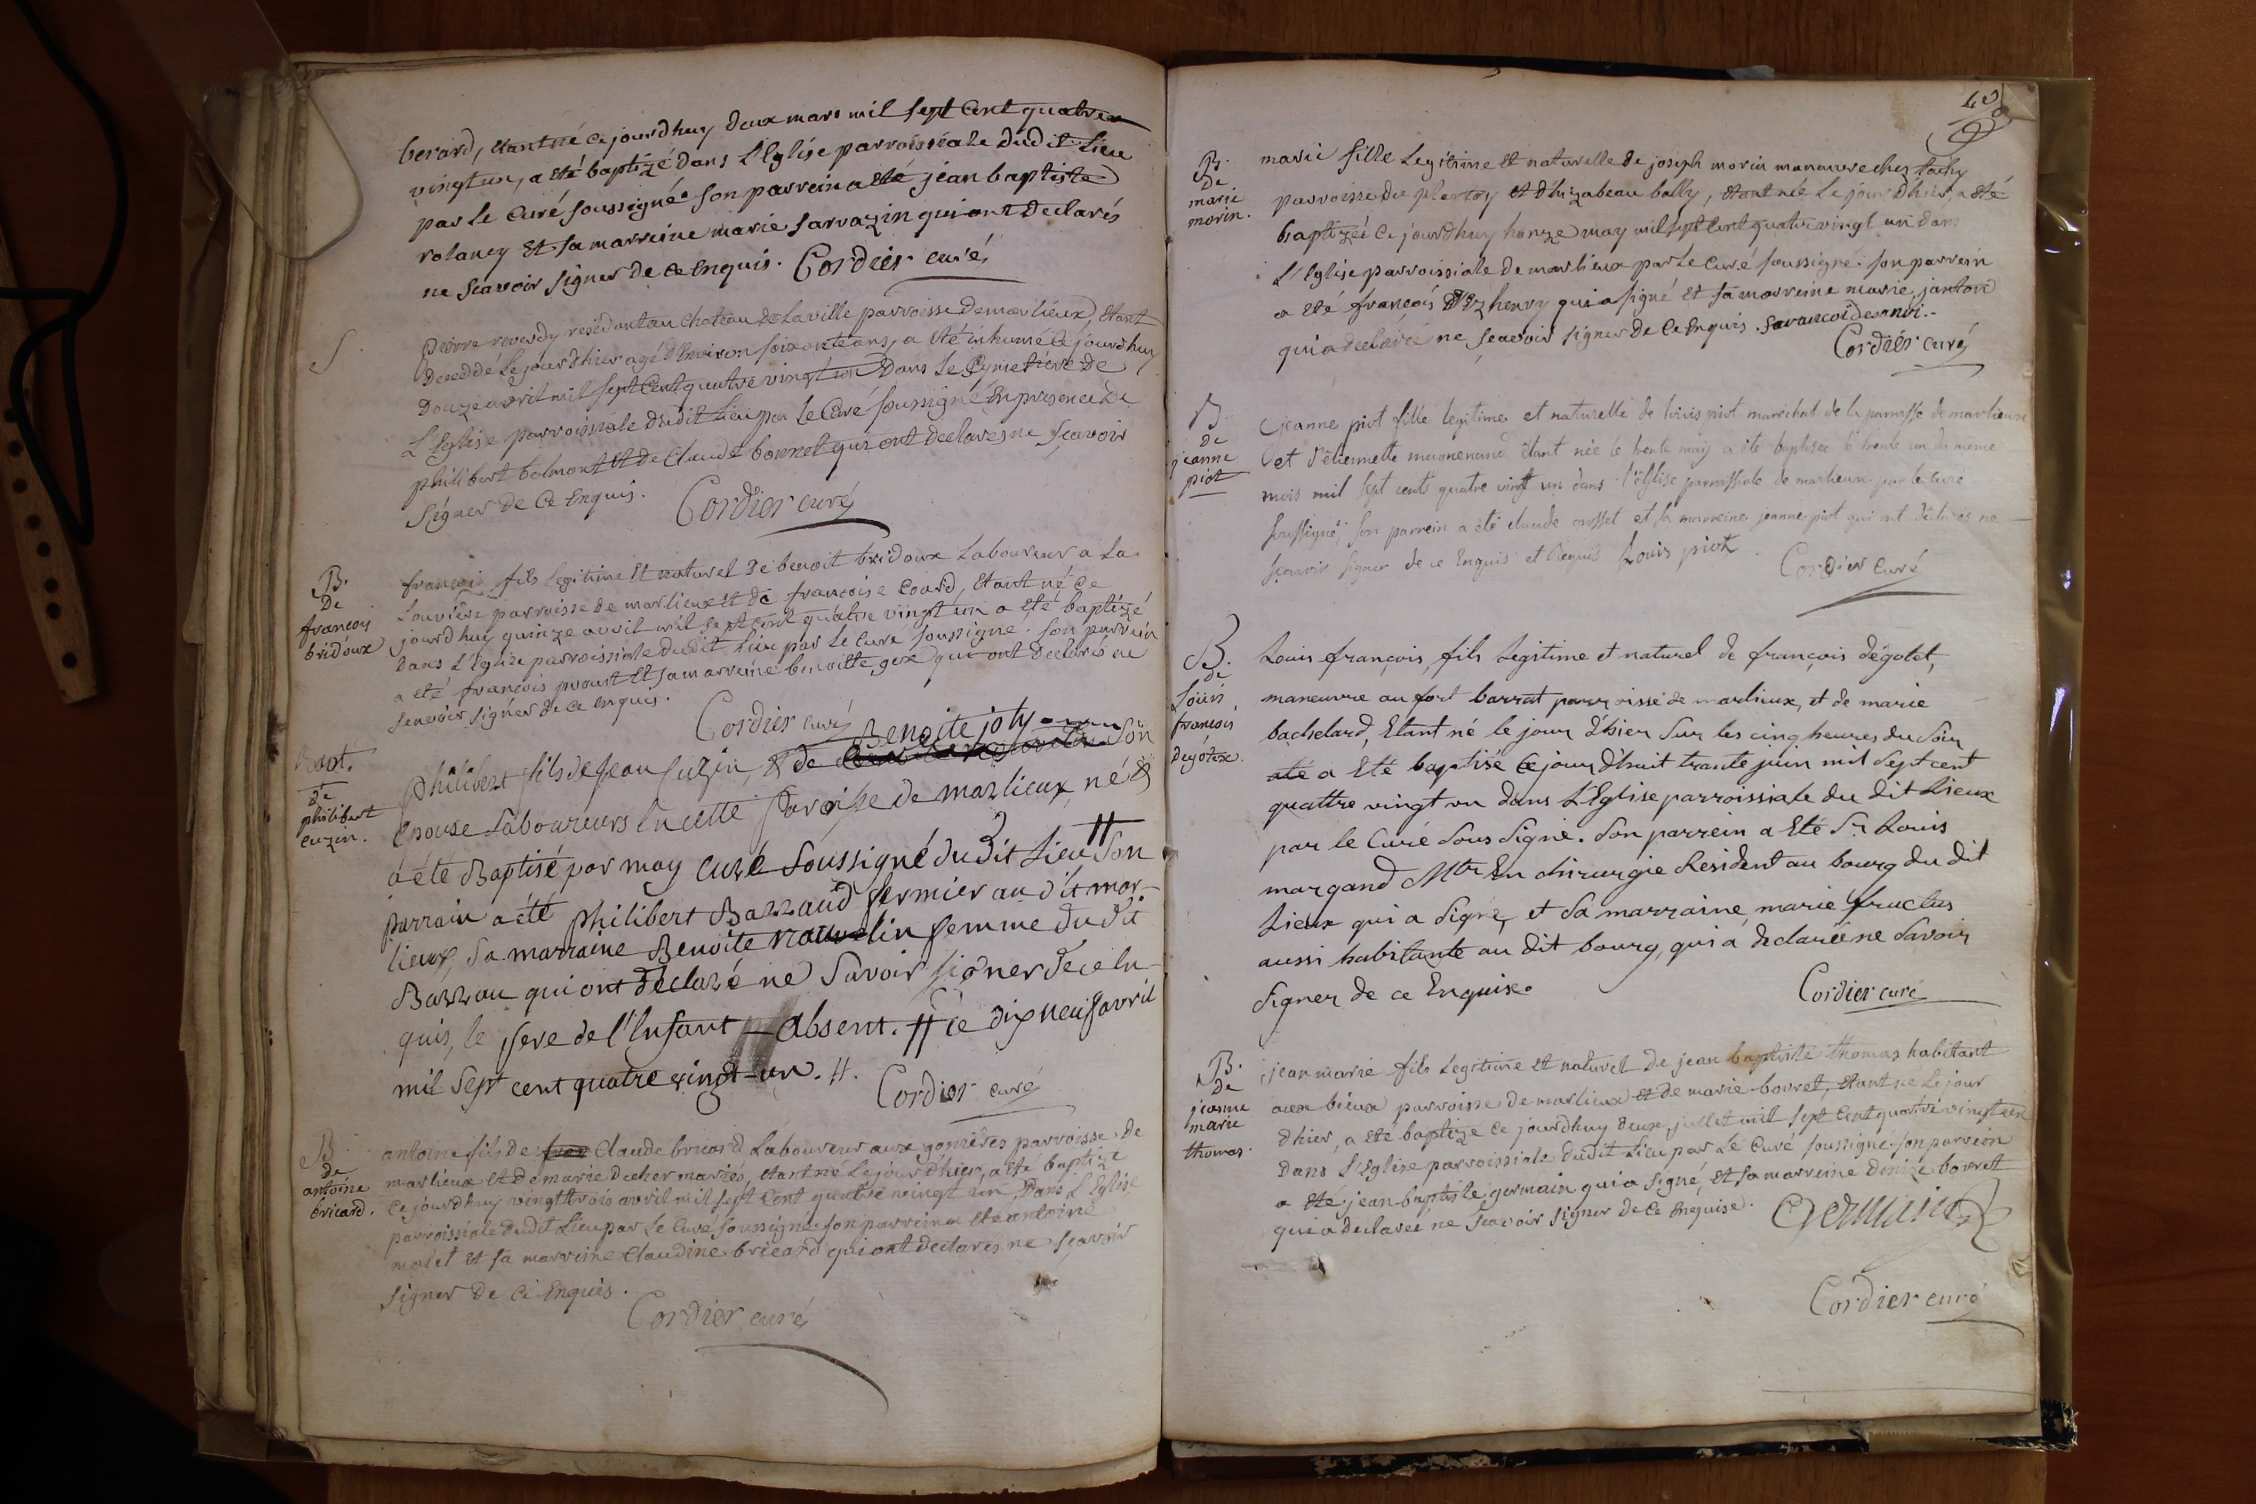 berard, etant né ce jourdhuy deux mars mil sept cent quatre
vingt un, a eté baptizé dans L'Eglise parroissiale dudit Lieu
par le Curé soussigné son parrein a eté jean baptiste
rolancy et sa marreine marie sarvazin qui ont declarés
ne scavoir signer de ce Enquis. Cordier curé
S.
pierre reverdy residant au chateau de la ville parroisse de marlieux, etant
decedé Le jour d'hier agé d'Environ soixante ans, a eté inhumé ce jourdhuy
douze avril mil sept Cent quatre vingt un dans Le Cymetiere de
L'Eglise parroissiale dudit Lieu par Le Curé soussigné En presence de
philibert belmont et de Claude bonnet qui ont declarés ne sçavoir
signer de ce Enquis. Cordier curé
B.
de
francois
bridoux
francois fils legitime et naturel de benoit bridoux Laboureur a La
Louviere parroisse de marlieux et de francoise Coard, etant né ce
jourd'huy quinze avril mil sept cent quatre vingt un a eté baptizé
dans L'Eglise parroissiale dudit Lieu par Le Curé soussigné. son parrein
a eté francois proust et sa marreine benoitte gex qui ont declarés ne
scavoir signer de ce Enquis.
Cordier curé
Bapt.
de
philibert
cuzin.
Benoite joly
philibert fils de jean Cuzin, & de son
Epouse Laboureurs En cette paroisse de marlieux né &
a été Baptisé par moy curé soussigné du dit Lieu # son
parrain a été philibert Barraud fermier au dit mar-
lieux, sa marraine Benoite nauvelin femme du dit
Barrau qui ont déclaré ne savoir signer de ce En-
quis, le pere de l'Enfant absent. # ce dix neuf avril
mil sept cent quatre vingt-un. #. Cordier curé
B.
de
antoine
bricard.
antoine fils de Claude bricard Laboureur aux gonieres parroisse de
marlieux et de marie ducher mariés, etant né Le jour d'hier, a eté baptizé
Ce jourd'huy vingt trois avril mil sept Cent quatre vingt un, Dans L'Eglise
parroissiale dudit Lieu par Le Curé soussigné. son parrein a eté antoine
molet et sa marreine Claudine bricard qui ont declarés ne sçavoir
signer de Ce Enquis.
Cordier curé
B.
de
marie
morin.
marie fille Legitime et naturelle de joseph morin manouvre chez tachy
parroisse du plantay et d'hizabeau bally, etant née Le jour d'hier, a eté
baptizée ce jourd'huy honze may mil sept Cent quatre vingt un dans
L'Eglise parroissiale de marlieux par Le Curé soussigné. son parrein
a eté francois henry qui a signé et sa marreine marie jantard
qui a declarée ne sçavoir signer de Ce Enquis.
Cordier curé
B.
de
jeanne
piot
jeanne piot fille legitime et naturelle de louis piot marechal de la parroisse de marlieux
et d'etiennette mugnenand étant née le trente may a été baptisée le trente un du même
mois mil sept cents quatre vingt un dans l'église parroissiale de marlieux par le curé
soussigné; son parrein a été claude crosset et sa marreine jeanne piot qui ont déclarés ne
sçavoir signer de ce Enquis et Requis Louis piot. Cordier curé
B.
de
Louis
francois
degotex.
Louis françois, fils Legitime et naturel de françois dégotet,
maneuvre au fort barrat parroisse de marlieux, et de marie
bachelard, Etant né le jour d'hier sur les cinq heures du Soir
até a Eté baptisé ce jour d'huit trante juin mil sept cent
quattre vingt un dans L'Eglise parroissiale du dit Lieux
par le Curé sous signé. Son parrein a Eté Sr Louis
margand Mtr En chirurgie Resident au bourg du dit
Lieux qui a signé, et sa marraine, marie fructus
aussi habitante au dit bourg, qui a declarée ne savoir
signer de ce Enquise. Cordier curé
B.
de
jeanne
marie
thomas.
jean marie fils Legitime et naturel de jean baptiste thomas habitant
aux bieux parroisse de marlieux et de marie bouret, etant né Le jour
d'hier, a eté baptizé ce jourd'huy deux juillet mil sept Cent quatre vingt un
dans L'Eglise parroissiale dudit Lieu par Le Curé soussigné. son parrein
a eté jean baptiste germain qui a signé, et sa marreine denize bouret
qui a declarée ne Scavoir signer de Ce Enquise. Germain
Cordier curé